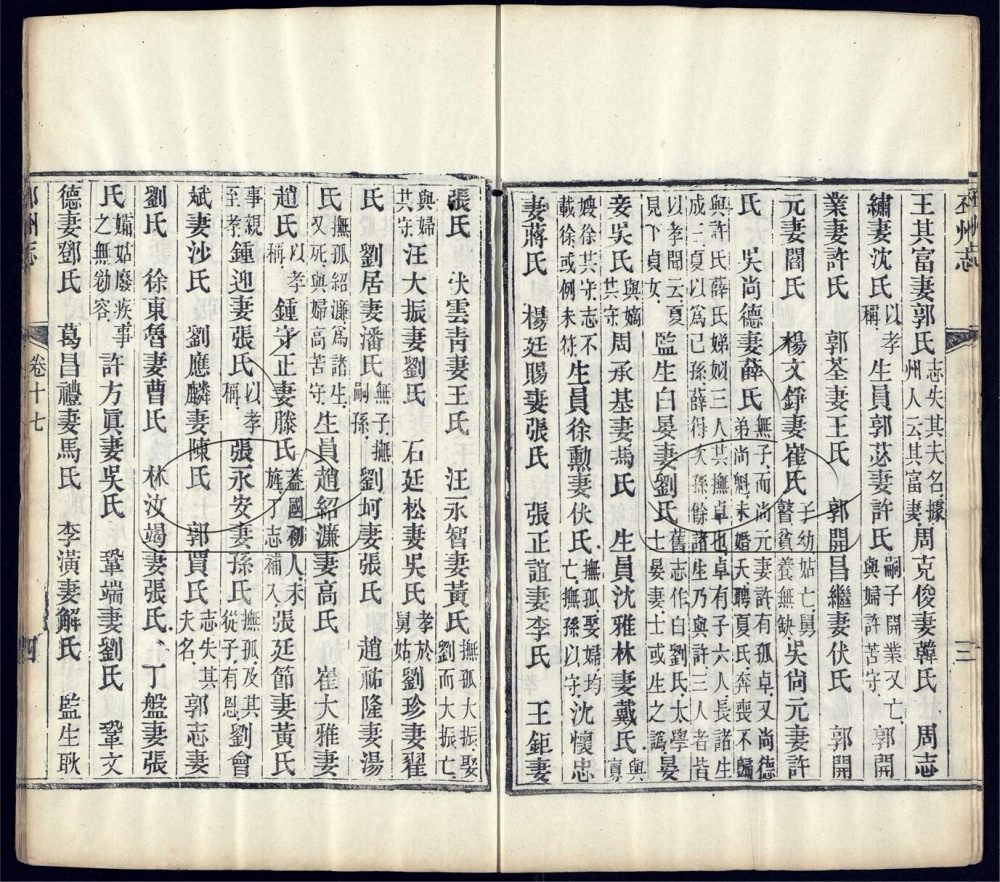 邳州志
三
王其富妻郭氏志失其夫名據州人云其富妻周克俊妻韓氏 周志
繡妻沈氏以孝稱 生員郭苾妻許氏嗣子開業又亡與婦許苦守 郭開
業妻許氏 郭荃妻王氏 郭開昌繼妻伏氏 郭開
元妻閻氏 楊文錚妻崔氏子幼姑亡舅瞽貧養無缺吳尙元妻許
氏 吳尚德妻薛氏無子而尚元妻許有孤卓又尚德弟尚魁未婚夭聘夏氏奔喪不歸
與許氏薛氏娣姒三人共撫卓也卓有子六人長諸生成三夏以爲己孫薛得次孫餘諸生乃與許三人者皆
以孝聞云夏見下貞女 監生白晏妻劉氏舊志作白劉氏太學士晏妻士或生之譌晏
妾吳氏與嫡共守 周承基妻馬氏 生員沈雅林妻戴氏與寡
嫂徐共守志不載徐或例未符生員徐勲妻伏氏撫孤娶婦均亡撫孫以守沈懷忠
妻蔣氏 楊廷賜妻張氏 張正誼妻李氏 王鉅妻
張氏 伏雲青妻王氏 汪永智妻黃氏撫孤大振娶劉而大振亡
與婦共守汪大振妻劉氏 石廷松妻吳氏孝於舅姑劉珍妻翟
氏 劉居妻潘氏無子撫嗣孫劉坷妻張氏 趙祐隆妻湯
氏撫孤紹濂爲諸生又死與婦高苦守生員趙紹濂妻高氏 崔大雅妻
趙氏以孝稱鍾守正妻滕氏蓋國初人未旌丁志補入張廷節妻黃氏
事親至孝鍾迎妻張氏以孝稱張永安妻孫氏撫孤及其從子有恩劉會
斌妻沙氏 劉應麟妻陳氏 郭賈氏志失其夫名郭志妻
劉氏 徐東魯妻曹氏 林汝竭妻張氏 丁盤妻張
氏孀姑廢疾事之無勌容許方眞妻吳氏 鞏端妻劉氏 鞏文
德妻鄧氏 葛昌禮妻馬氏 李潢妻解氏 監生耿
卷十七